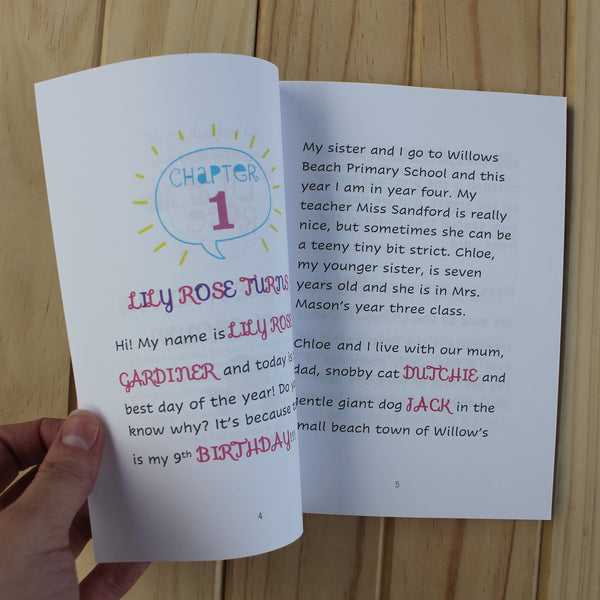 CHAPTER
1
LILY ROSE TURNS
Hi! My name is LILY ROSE
GARDINER and today is
best day of the year! Do
know why? It's because
is my 9th BIRTHDAY!!!
4
My sister and I go to Willows
Beach Primary School and this
year I am in year four. My
teacher Miss Sandford is really
nice, but sometimes she can be
a teeny tiny bit strict. Chloe,
my younger sister, is seven
years old and she is in Mrs.
Mason's year three class.
Chloe and I live with our mum,
dad, snobby cat DUTCHIE and
gentle giant dog JACK in the
small beach town of Willow's
5